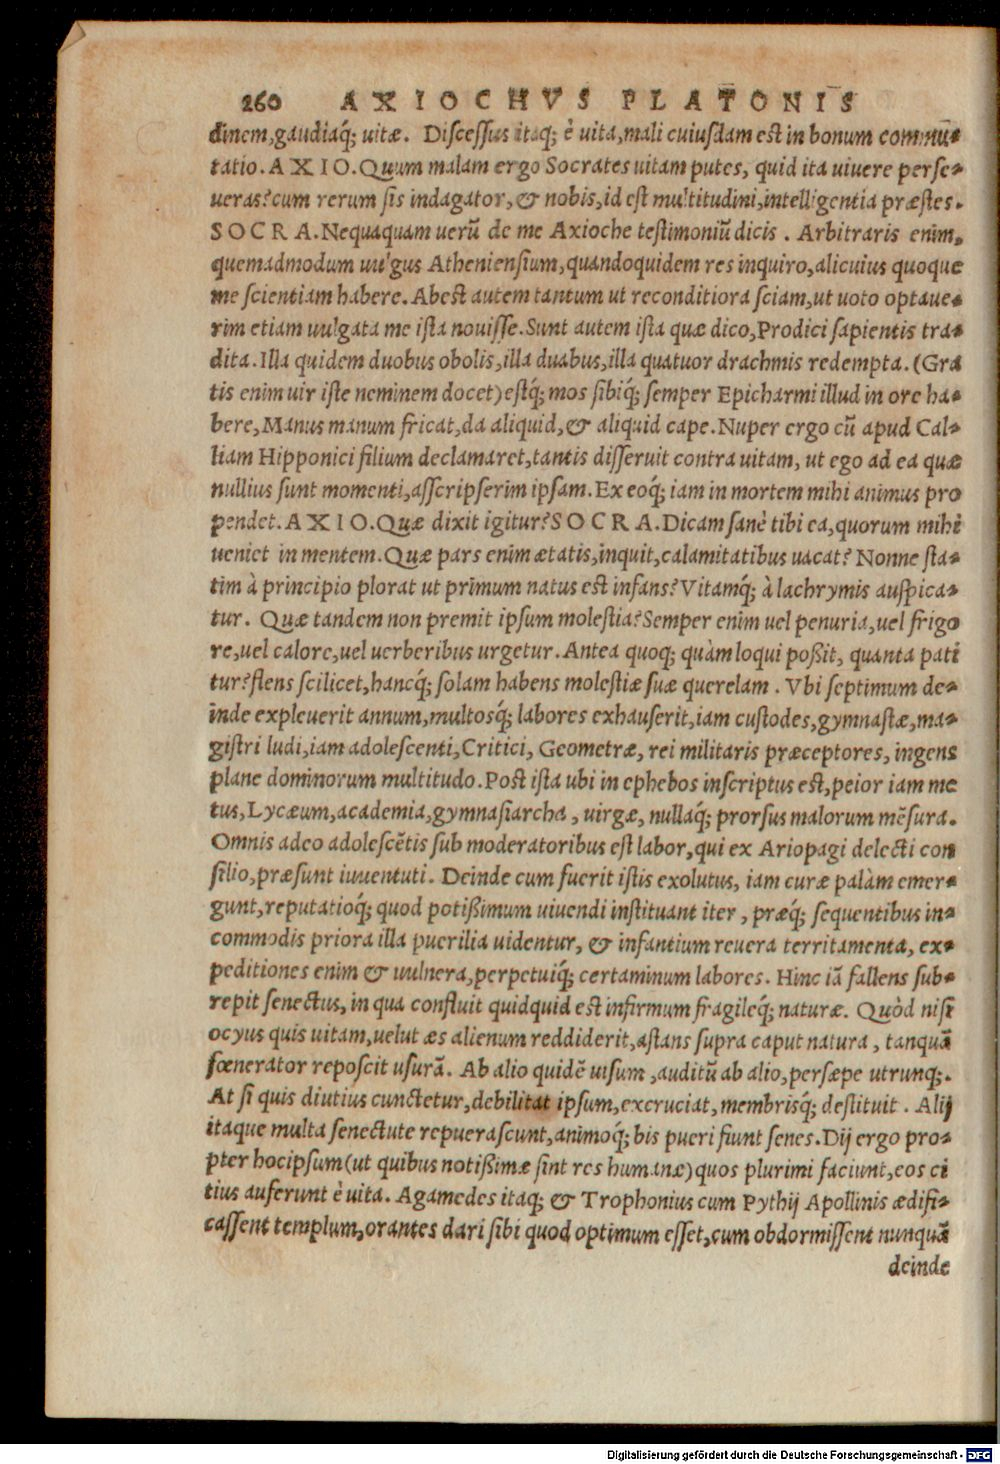 260 AXIOCHVS PLATONIS
dinem,gaudiaq́; uitæ. Discessus itaq; è uita,mali cuiusdam est in bonum commu-
tatio. AXIO. Quum malam ergo Socrates uitam putes, quid ita uiuere perse-
ueras? cum rerum sis indagator, & nobis,id est multitudini,intelligentia præstes.
SOCRA. Nequaquam uerũ de me Axioche testimoniũ dicis. Arbitraris enim,
quemadmodum uulgus Atheniensium,quandoquidem res inquiro,alicuius quoque
me scientiam habere. Abest autem tantum ut reconditiora sciam,ut uoto optaue-
rim etiam uulgata me ista nouisse. Sunt autem ista quæ dico,Prodici sapientis tra-
dita. Illa quidem duobus obolis,illa duabus,illa quatuor drachmis redempta. (Gra
tis enim uir iste neminem docet) estq́; mos sibiq́; semper Epicharmi illud in ore ha-
bere,Manus manum fricat,da aliquid,& aliquid cape. Nuper ergo cũ apud Cal-
liam Hipponici filium declamaret,tantis disseruit contra uitam, ut ego ad ea quæ
nullius sunt momenti,asscripserim ipsam. Ex eoq́; iam in mortem mihi animus pro
pendet. AXIO. Quæ dixit igitur? SOCRA. Dicam sanè tibi ea,quorum mihi
ueniet in mentem. Quæ pars enim ætatis,inquit,calamitatibus uacat? Nonne sta-
tim à principio plorat ut primum natus est infans? Vitamq́; à lachrymis auspica-
tur. Quæ tandem non premit ipsum molestia? Semper enim uel penuria,uel frigo
re,uel calore,uel uerberibus urgetur. Antea quoq; quàm loqui poßit, quanta pati
tur? flens scilicet,hancq́; solam habens molestiæ suæ querelam. Vbi septimum de-
inde expleuerit annum,multosq́; labores exhauserit,iam custodes,gymnastæ,ma-
gistri ludi,iam adolescenti,Critici, Geometræ, rei militaris præceptores, ingens
plane dominorum multitudo. Post ista ubi in ephebos inscriptus est,peior iam me
tus,Lycæum,academia,gymnasiarcha, uirgæ, nullaq́; prorsus malorum mẽsura.
Omnis adeo adolescẽtis sub moderatoribus est labor,qui ex Ariopagi delecti con
silio,præsunt iuuentuti. Deinde cum fuerit istis exolutus, iam curæ palàm emer-
gunt,reputatioq́; quod potißimum uiuendi instituant iter, præq́; sequentibus in-
commodis priora illa puerilia uidentur, & infantium reuera territamenta, ex-
peditiones enim & uulnera,perpetuiq́; certaminum labores. Hinc iã fallens sub-
repit senectus, in qua confluit quidquid est infirmum fragileq́; naturæ. Quòd nisi
ocyus quis uitam,uelut æs alienum reddiderit,astans supra caput natura, tanquã
fœnerator reposcit usurã. Ab alio quidẽ uisum, auditũ ab alio,persæpe utrunq;.
At si quis diutius cunctetur,debilitat ipsum,excruciat,membrisq́; destituit. Alij
itaque multa senectute repuerascunt,animoq́; bis pueri fiunt senes. Dij ergo pro-
pter hocipsum (ut quibus notißimæ sint res humanæ) quos plurimi faciunt,eos ci
tius auferunt è uita. Agamedes itaq; & Trophonius cum Pythij Apollinis ædifi-
cassent templum,orantes dari sibi quod optimum esset,cum obdormissent nunquã
deinde
Digitalisierung gefördert durch die Deutsche Forschungsgemeinschaft - DFG